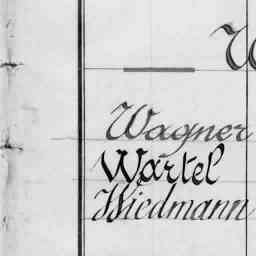 W
Wagner
Wartel
Wiedmann